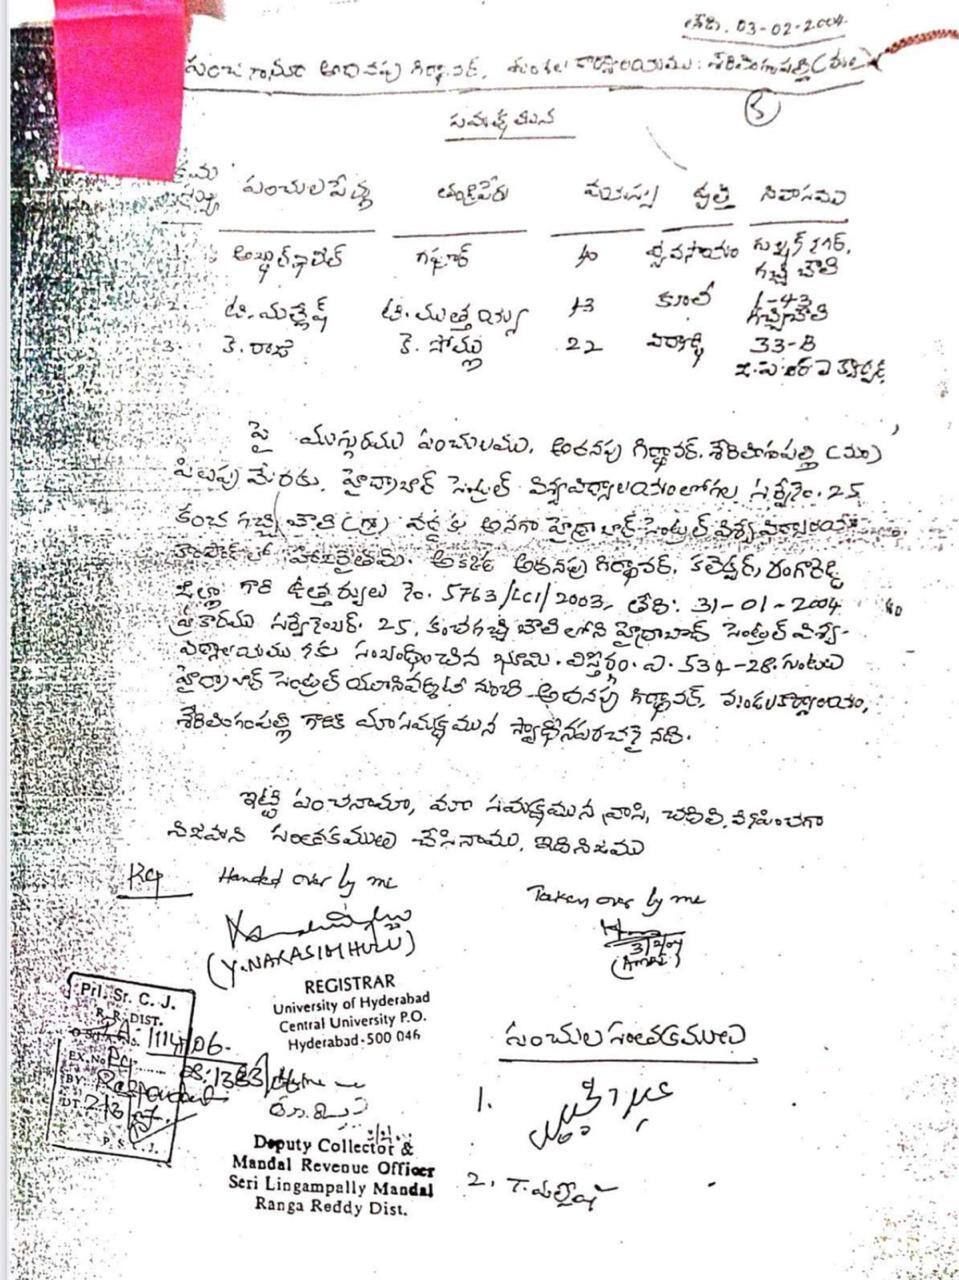 తేది. 03-02-2004.
పంచనామా అదనపు గిర్దావర్, మండల కార్యాలయము: శేరిలింగంపల్లి (మం)
5
సమక్షమున
క్రమ సంఖ్య పంచుల పేర్లు తండ్రి పేరు వయస్సు వృత్తి నివాసము
గఫూర్ 40 వ్యవసాయం
గచ్చిబౌలి
2. టి. మల్లేష్ టి. ముత్తయ్య 43 కూలీ 1-43
గచ్చిబౌలి
3. కె. రాజు కె. సోమ్లు 22 విద్యార్థి 33-B
పై ముగ్గురము పంచులము, అదనపు గిర్దావర్, శేరిలింగంపల్లి (మం)
పిలుపు మేరకు, హైద్రాబాద్ సెంట్రల్ విశ్వవిద్యాలయంలోగల సర్వేనెం. 25
కంచ గచ్చిబౌలి (గ్రా) వద్దకు అనగా హైద్రాబాద్ సెంట్రల్ విశ్వవిద్యాలయ
హాజరైతిమి. అక్కడ అదనపు గిర్దావర్, కలెక్టర్, రంగారెడ్డి
జిల్లా గారి ఉత్తర్వులు నెం. 5763/LC1/2003, తేది: 31-01-2004
ప్రకారము సర్వేనెంబర్. 25, కంచగచ్చిబౌలి లోని హైద్రాబాద్ సెంట్రల్ విశ్వ-
విద్యాలయమునకు సంబంధించిన భూమి. విస్తీర్ణం. ఎ. 534-28. గుంటలు
హైద్రాబాద్ సెంట్రల్ యూనివర్సిటీ నుంచి అదనపు గిర్దావర్, మండలకార్యాలయం,
శేరిలింగంపల్లి గారికి మా సమక్షమున స్వాధీనపరచనైనది.
ఇట్టి పంచనామా, మా సమక్షమున వ్రాసి, చదివి వినిపించగా
నిజమని సంతకములు చేసినాము. ఇది నిజము
Handed over by me
Taken over by me
3/2/04
(Y. NARASIMHULU)
REGISTRAR
University of Hyderabad
Central University P.O.
Hyderabad-500 046
Prl. Sr. C. J.
R. R. DIST.
EX. No.
BY
DT.
పంచుల సంతకములు
1.
Deputy Collector &
Mandal Revenue Officer
Seri Lingampally Mandal
Ranga Reddy Dist.
2. T. మల్లేష్